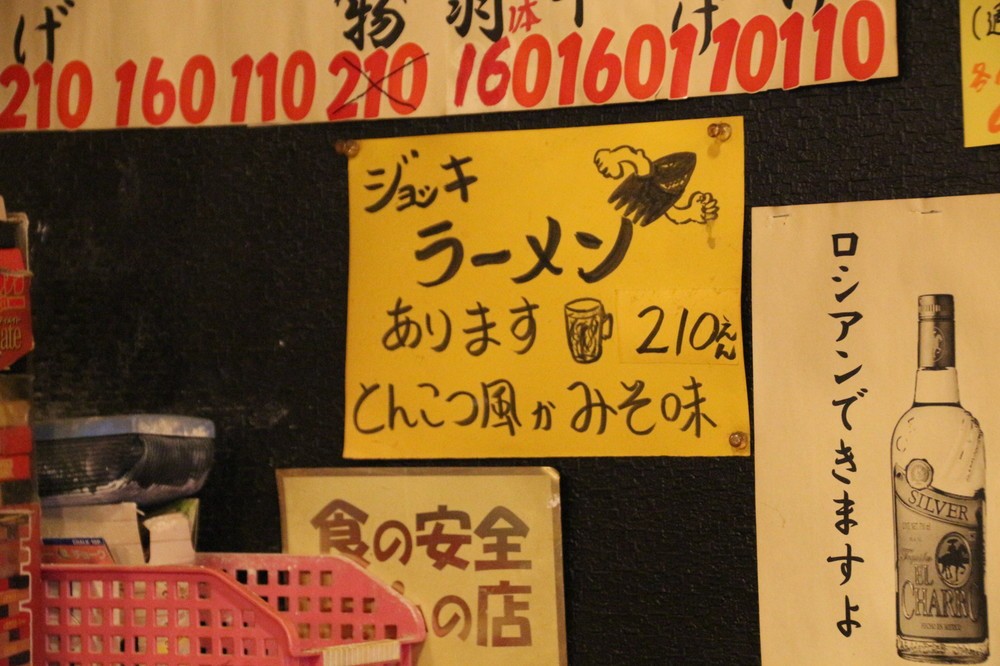 げ 物 羽 体
210 160 110 210 160 160 110 110 110
ジョッキ
ラーメン
あります 210えん
とんこつ風 か みそ味
食の安全
の店
ロシアンできますよ
SILVER
EL
CHARRO